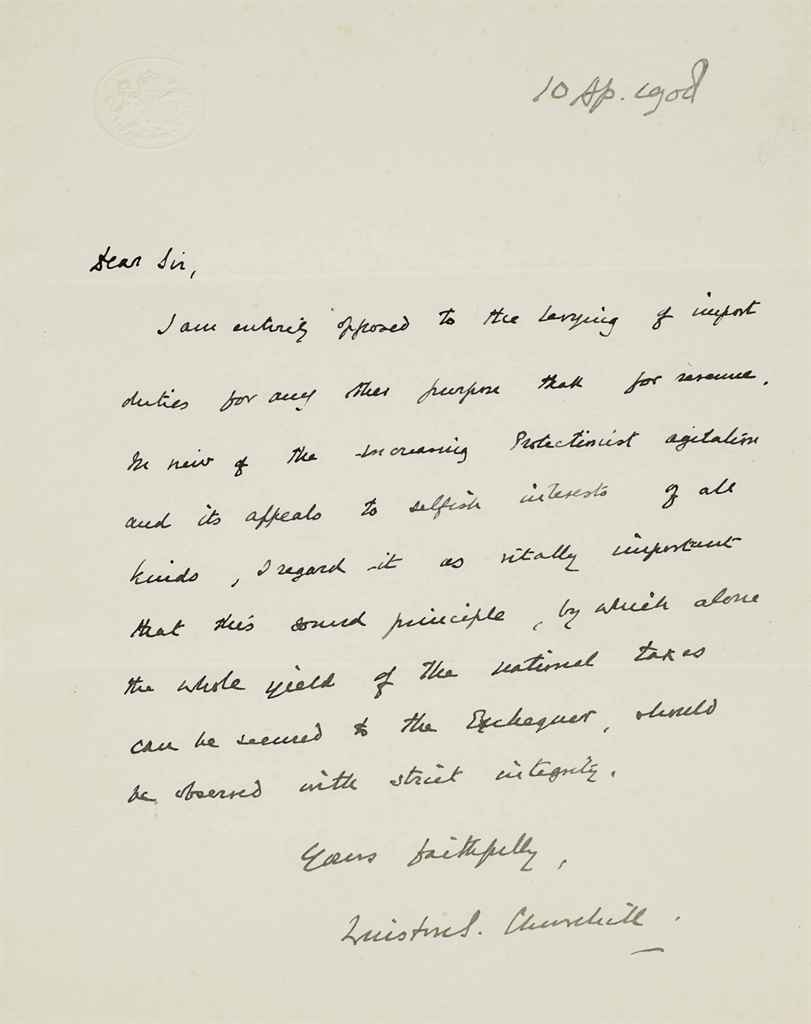 10 Ap. 1908
Dear Sir,
I am entirely opposed to the levying of import
duties for any other purpose than for revenue.
In view of the increasing Protectionist agitation
and its appeals to selfish interests of all
kinds, I regard it as vitally important
that this sound principle, by which alone
the whole yield of the national taxes
can be secured to the Exchequer, should
be observed with strict integrity.
Yours faithfully,
Winston S. Churchill.